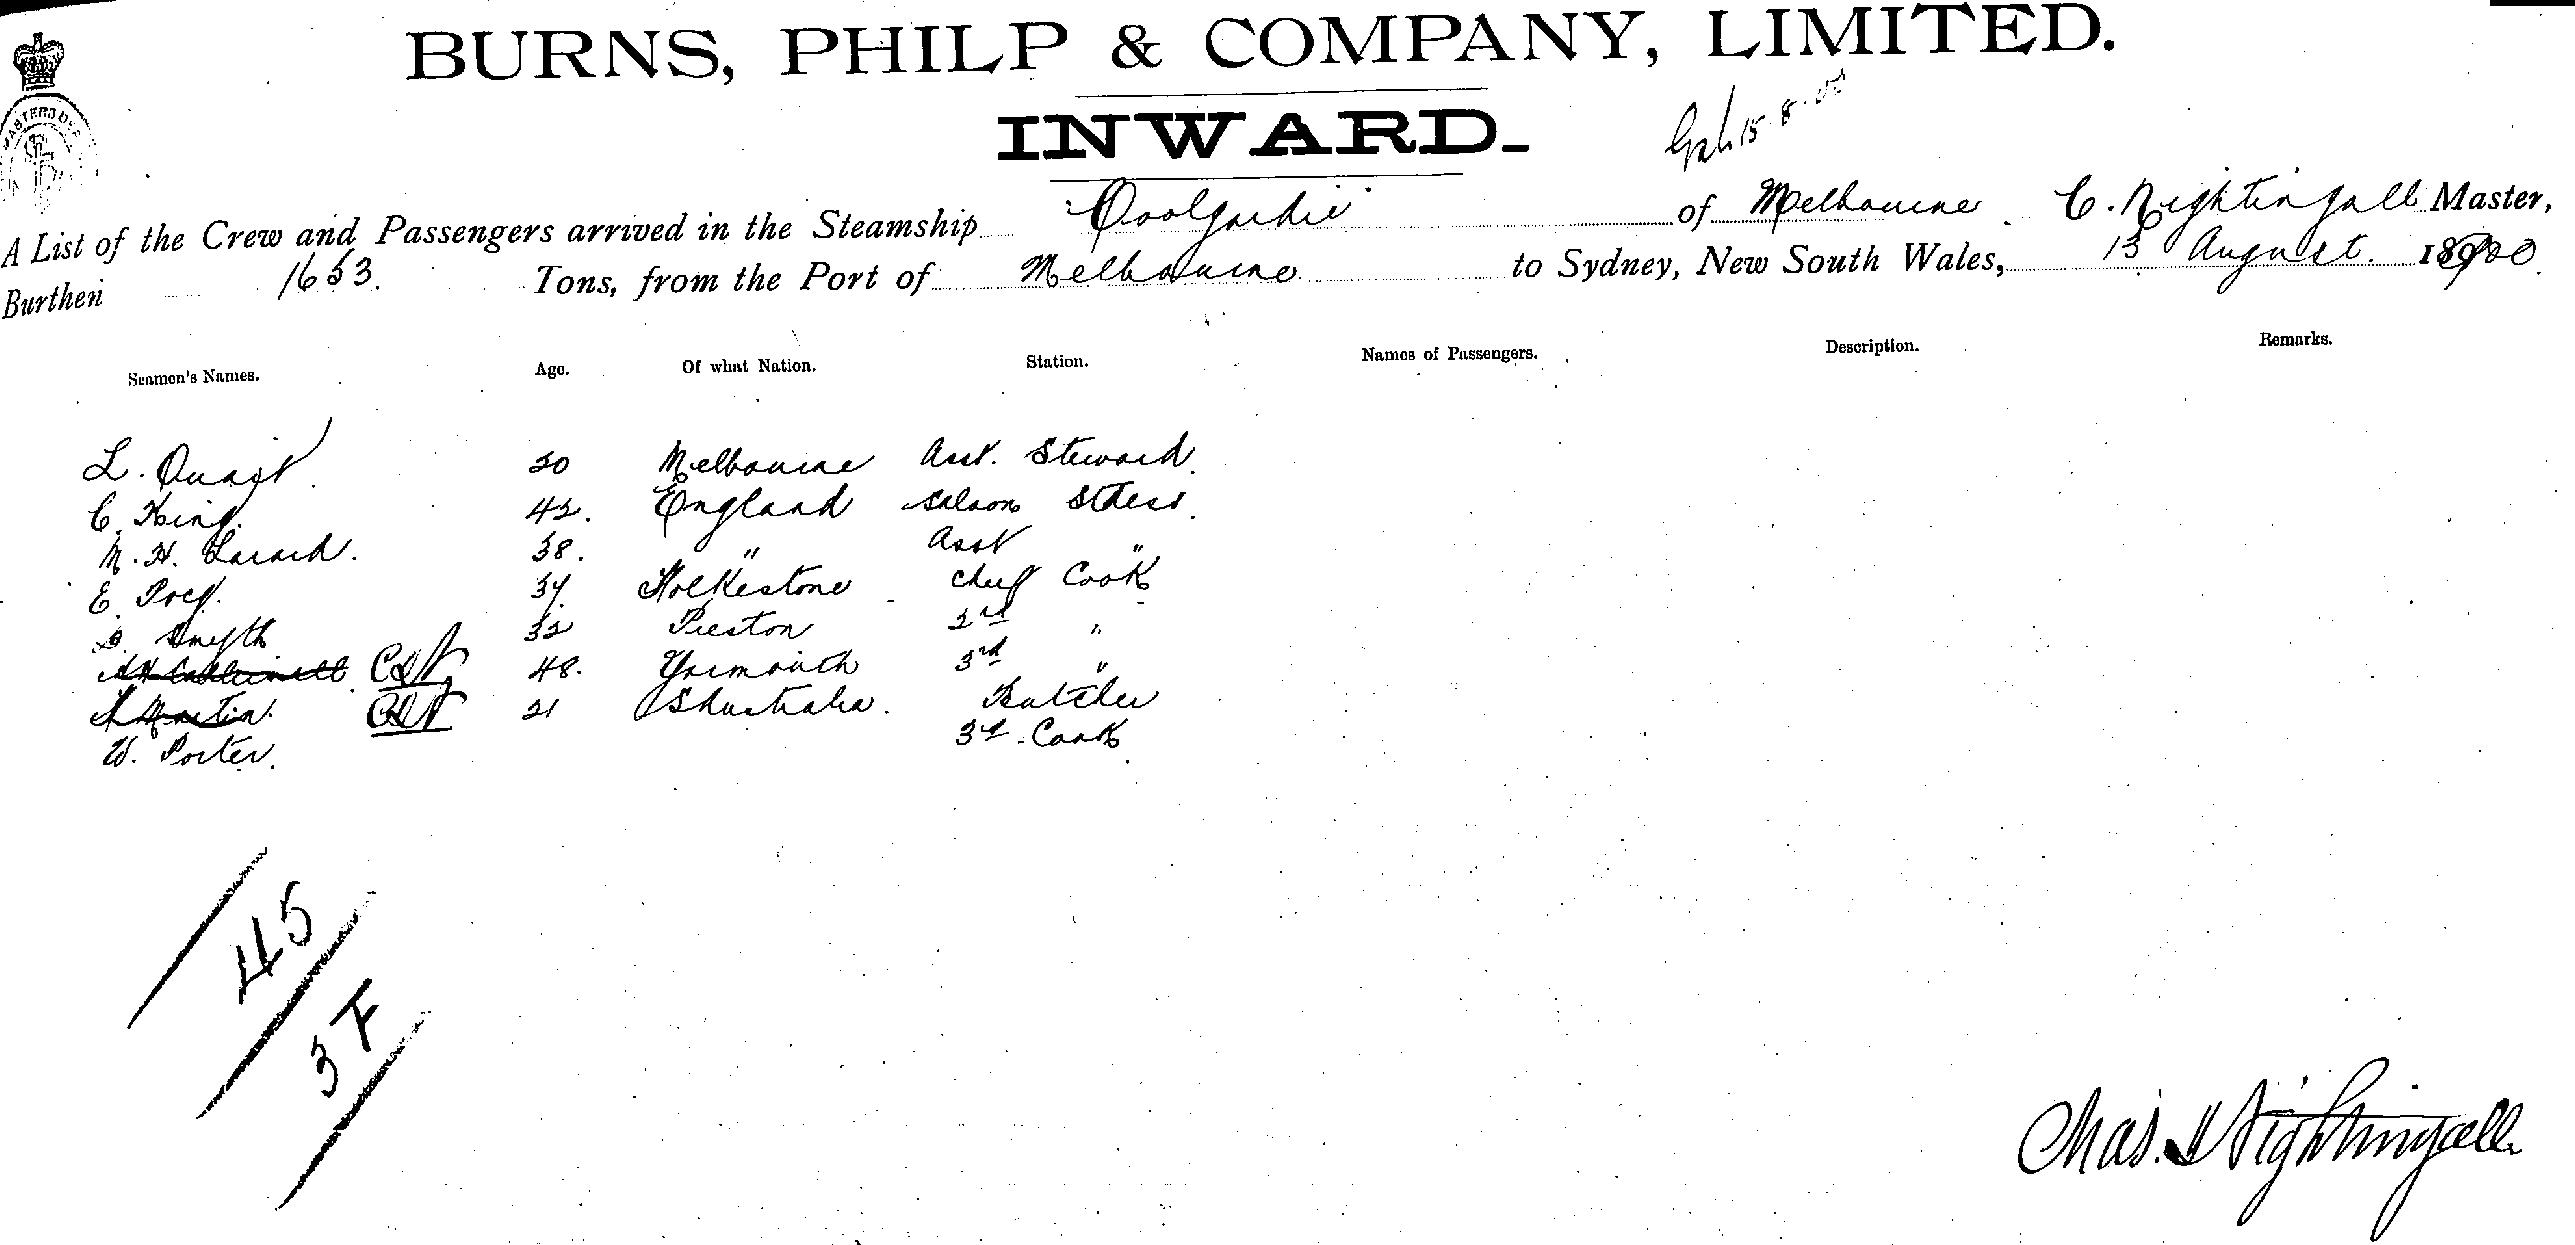 BURNS, PHILP & COMPANY, LIMITED.
INWARD.
15.8.00
A List of the Crew and Passengers arrived in the Steamship Coolgardie of Melbourne C. Nightingall Master,
Burthen 1653. Tons, from the Port of Melbourne to Sydney, New South Wales, 13 August. 1900
Seamen's Names. Age. Of what Nation. Station. Names of Passengers. Description. Remarks.
L. Quast 20 Melbourne Asst. Steward.
C. King. 42. England Saloon Stdess.
M. H. Larard. 38. " Asst "
E. 37 Folkestone Chief Cook
S. Smyth 32 Preston 2nd "
48. Yarmouth 3rd "
Martin. 21 Australia. Butcher
W. Porter. 3d. Cook
45
3 F
Chas. Nightingall